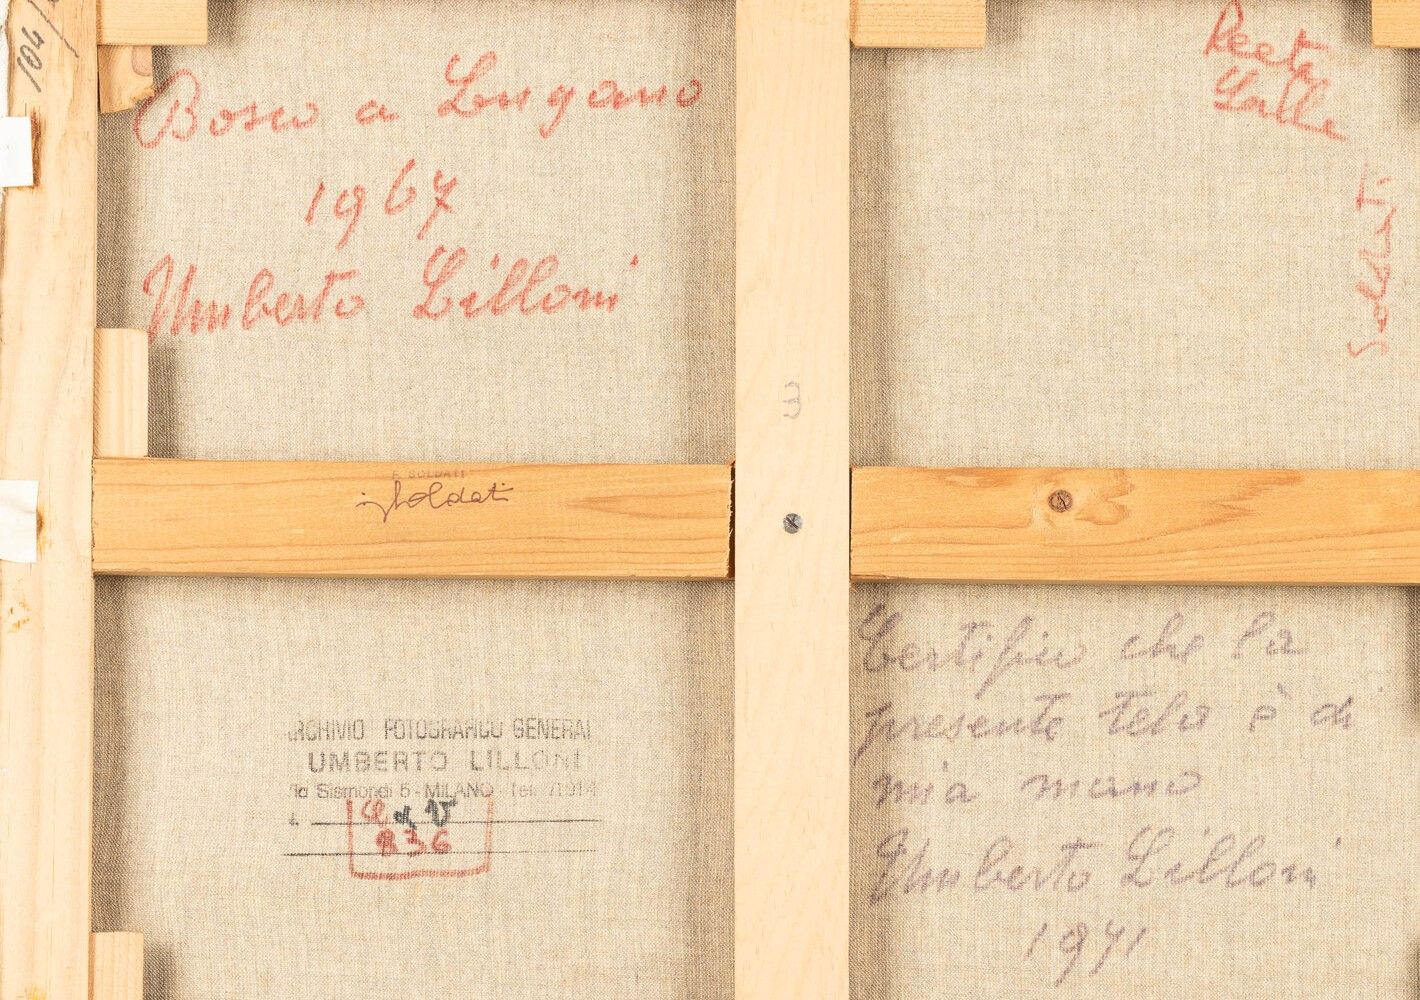 104/
Bosco a Lugano
1967
Umberto Lilloni
Soldati
3
F. SOLDATI
Soldati
ARCHIVIO FOTOGRAFICO GENERAL
UMBERTO LILLONI
Via Sismondi 5 - MILANO Tel. 71914
836
Certifico che la
presente tela è di
mia mano
Umberto Lilloni
1971